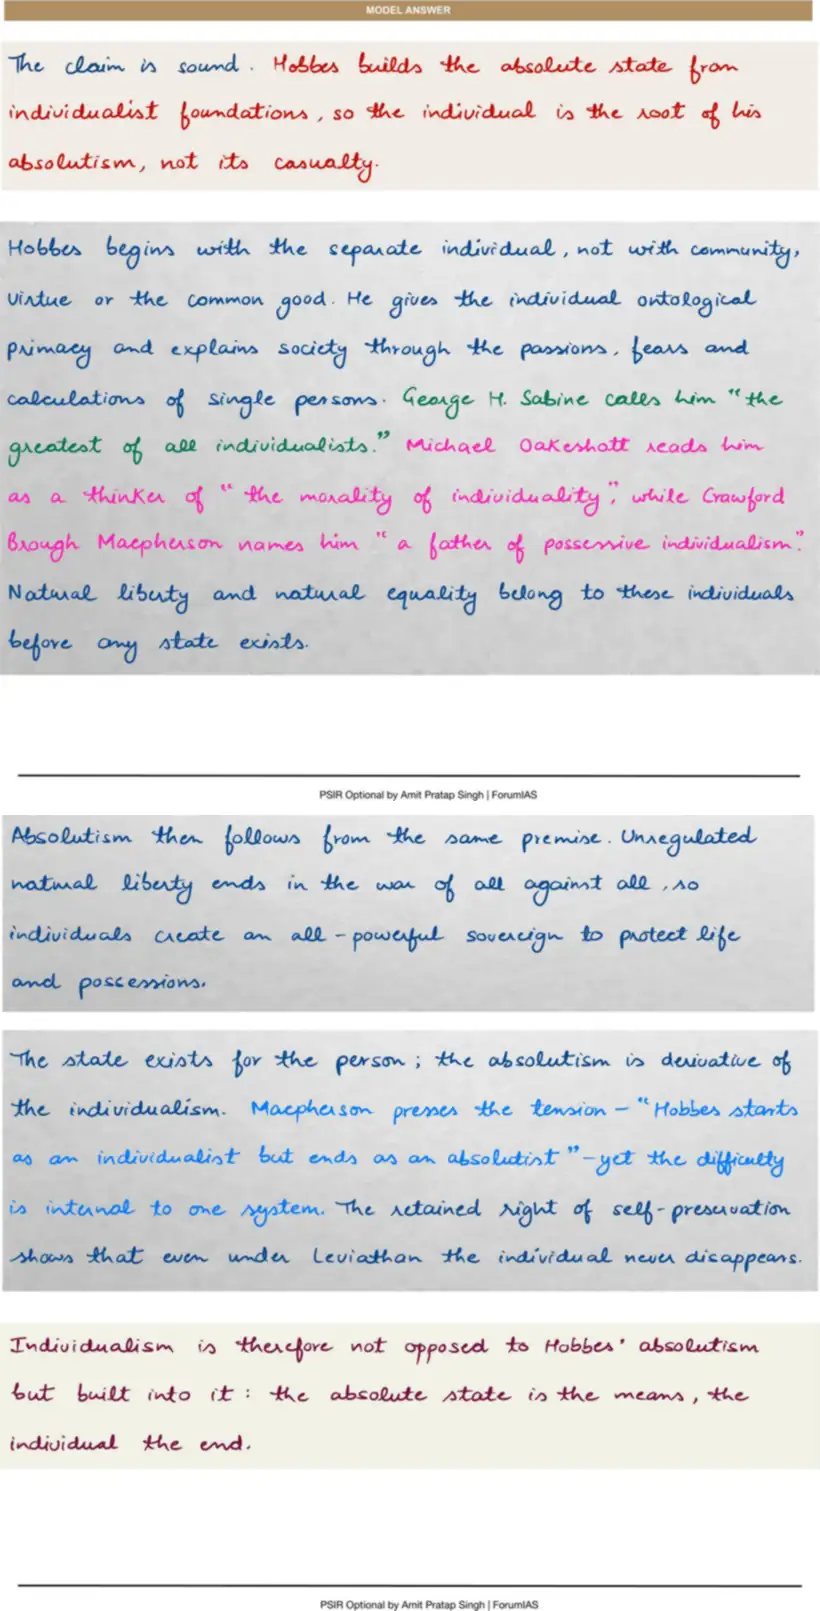 MODEL ANSWER
The claim is sound. Hobbes builds the absolute state from
individualist foundations, so the individual is the root of his
absolutism, not its casualty.
Hobbes begins with the separate individual, not with community,
virtue or the common good. He gives the individual ontological
primacy and explains society through the passions, fears and
calculations of single persons. George H. Sabine calls him "the
greatest of all individualists." Michael Oakeshott reads him
as a thinker of "the morality of individuality", while Crawford
Brough Macpherson names him "a father of possessive individualism".
Natural liberty and natural equality belong to these individuals
before any state exists.
PSIR Optional by Amit Pratap Singh | ForumIAS
Absolutism then follows from the same premise. Unregulated
natural liberty ends in the war of all against all, so
individuals create an all-powerful sovereign to protect life
and possessions.
The state exists for the person; the absolutism is derivative of
the individualism. Macpherson presses the tension – "Hobbes starts
as an individualist but ends as an absolutist" – yet the difficulty
is internal to one system. The retained right of self-preservation
shows that even under Leviathan the individual never disappears.
Individualism is therefore not opposed to Hobbes' absolutism
but built into it: the absolute state is the means, the
individual the end.
PSIR Optional by Amit Pratap Singh | ForumIAS